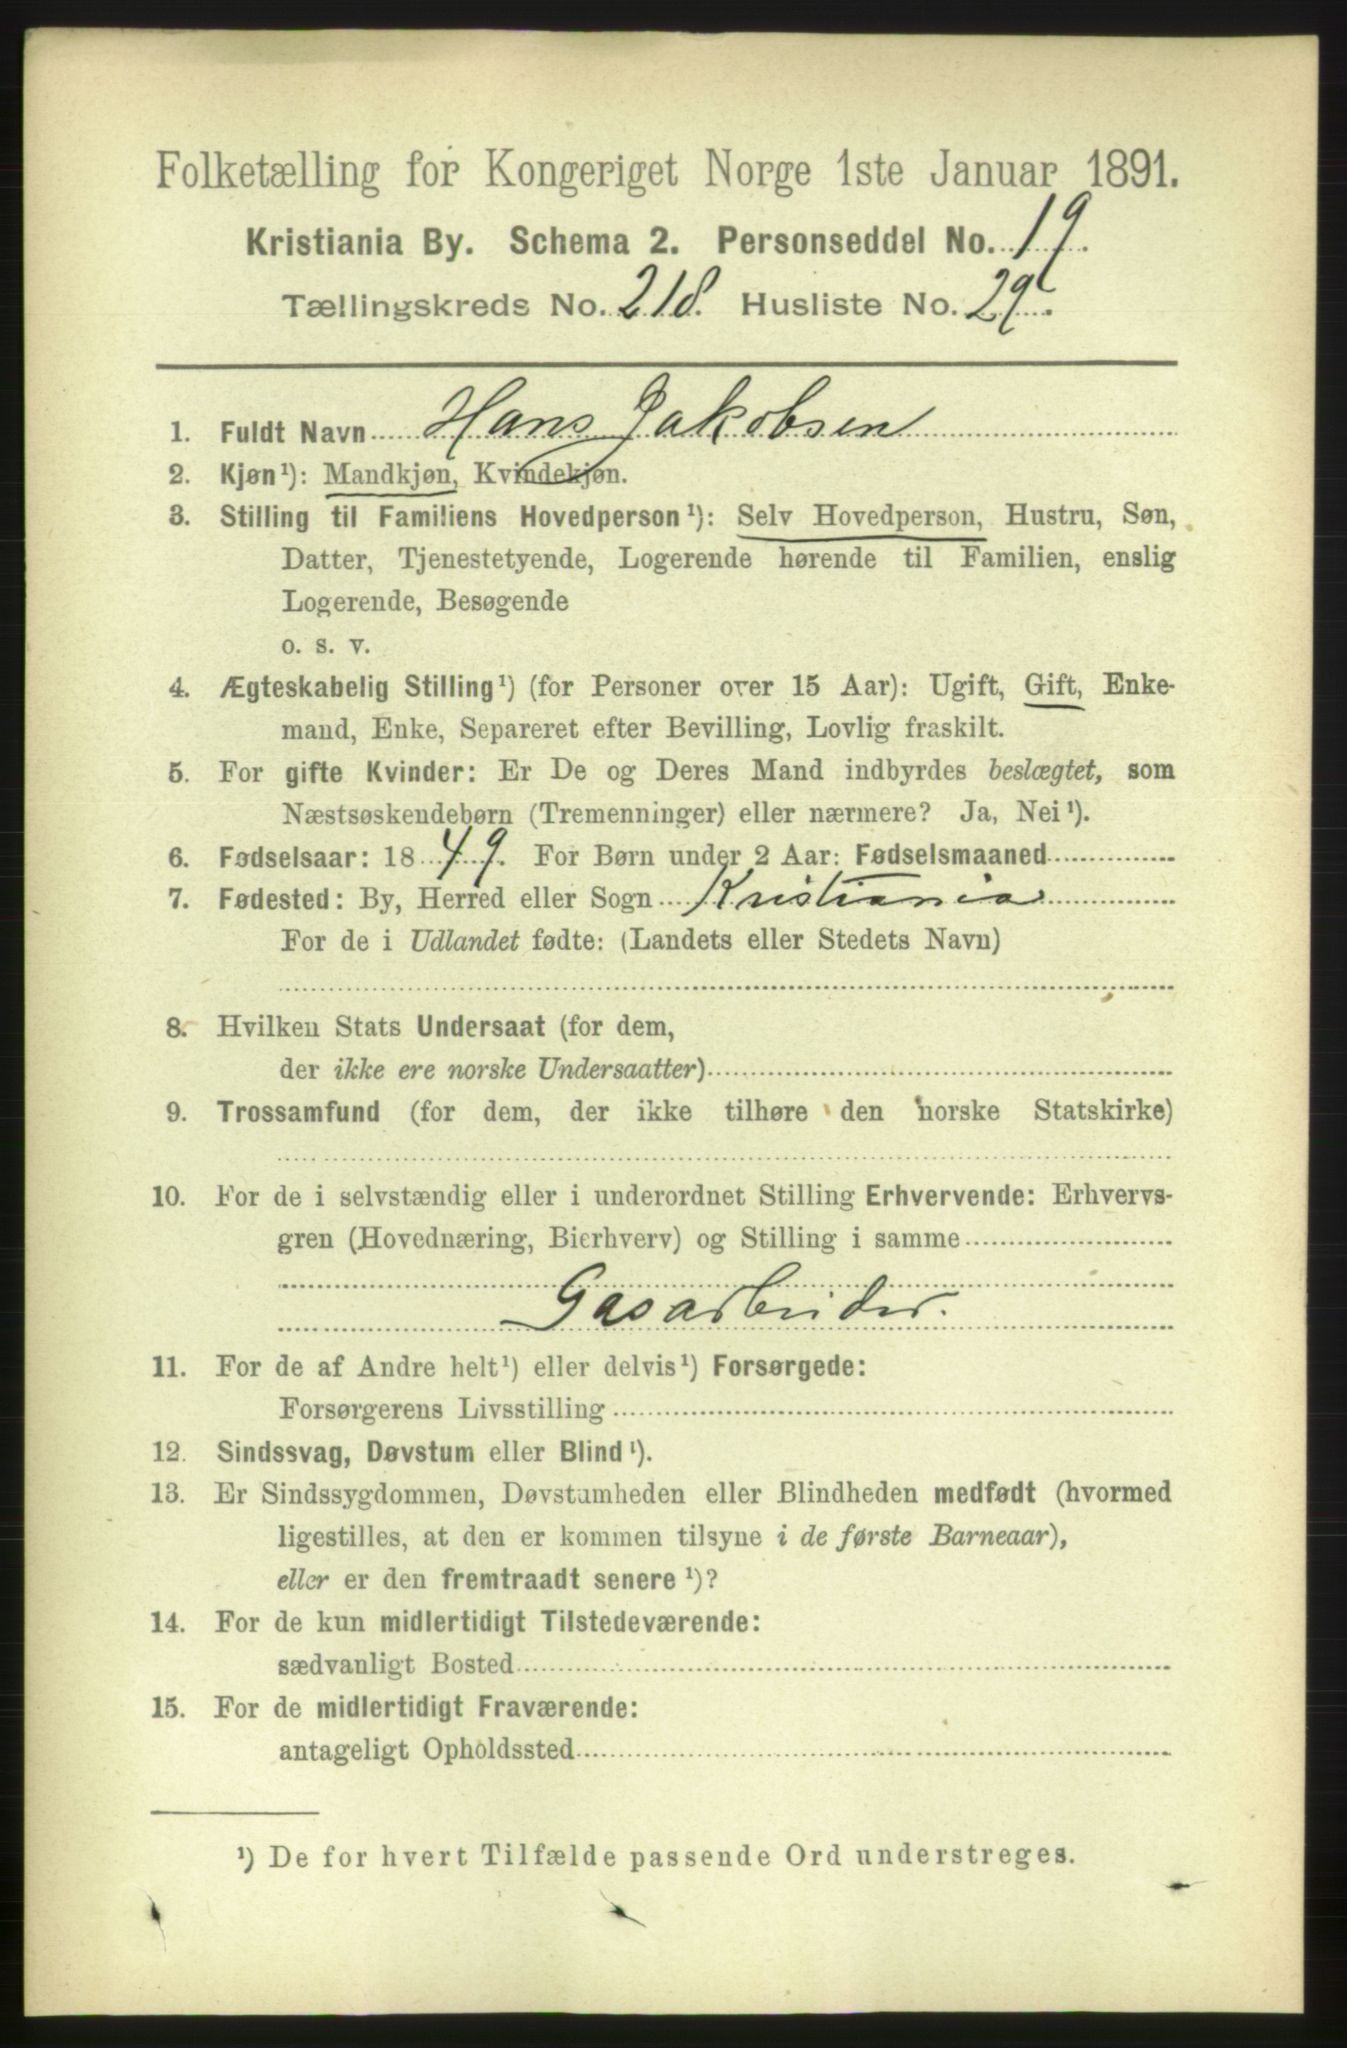 Folketælling for Kongeriget Norge 1ste Januar 1891.
Kristiania By. Schema 2. Personseddel No. 19.
Tællingskreds No. 218. Husliste No. 29.
1. Fuldt Navn Hans Jakobsen
2. Kjøn¹): Mandkjøn, Kvindekjøn.
3. Stilling til Familiens Hovedperson¹): Selv Hovedperson, Hustru, Søn,
Datter, Tjenestetyende, Logerende hørende til Familien, enslig
Logerende, Besøgende
o. s. v.
4. Ægteskabelig Stilling¹) (for Personer over 15 Aar): Ugift, Gift, Enke-
mand, Enke, Separeret efter Bevilling, Lovlig fraskilt.
5. For gifte Kvinder: Er De og Deres Mand indbyrdes beslægtet, som
Næstsøskendebørn (Tremenninger) eller nærmere? Ja, Nei¹).
6. Fødselsaar: 1849. For Børn under 2 Aar: Fødselsmaaned
7. Fødested: By, Herred eller Sogn Kristiania
For de i Udlandet fødte: (Landets eller Stedets Navn)
8. Hvilken Stats Undersaat (for dem,
der ikke ere norske Undersaatter)
9. Trossamfund (for dem, der ikke tilhøre den norske Statskirke)
10. For de i selvstændig eller i underordnet Stilling Erhvervende: Erhvervs-
gren (Hovednæring, Bierhverv) og Stilling i samme
Gasarbeider.
11. For de af Andre helt¹) eller delvis¹) Forsørgede:
Forsørgerens Livsstilling
12. Sindssvag, Døvstum eller Blind¹).
13. Er Sindssygdommen, Døvstumheden eller Blindheden medfødt (hvormed
ligestilles, at den er kommen tilsyne i de første Barneaar),
eller er den fremtraadt senere¹)?
14. For de kun midlertidigt Tilstedeværende:
sædvanligt Bosted
15. For de midlertidigt Fraværende:
antageligt Opholdssted
¹) De for hvert Tilfælde passende Ord understreges.